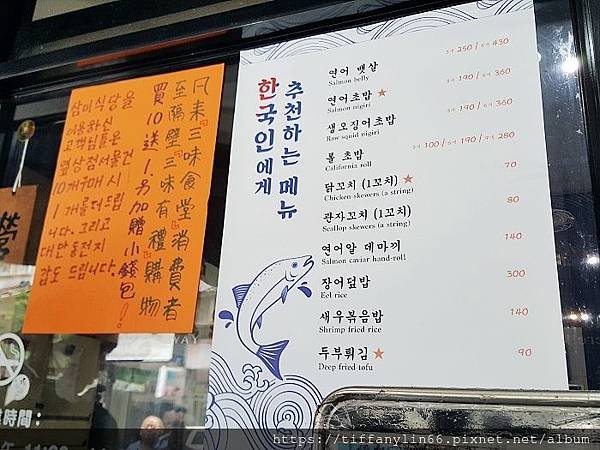 삼미식당을
이용하신
고객님들은
옆상점서물건
10개구매시
1개를더드립
니다. 그리고
대만동전지
갑도 드립니다.
凡来三味食堂消費者
至隔壁三味有禮購物
買10送1.另加贈小錢包!
한국인에게
추천하는 메뉴
연어 뱃살 250 / 430
Salmon belly
연어초밥★ 190 / 360
Salmon nigiri
생오징어초밥 190 / 360
Raw squid nigiri
롤 초밥 100 / 190 / 280
California roll
닭꼬치 (1꼬치)★ 70
Chicken skewers (a string)
관자꼬치 (1꼬치) 80
Scallop skewers (a string)
연어알 데마끼 140
Salmon caviar hand-roll
장어덮밥 300
Eel rice
새우볶음밥 140
Shrimp fried rice
두부튀김★ 90
Deep fried tofu
時間:
https://tiffanylin66.pixnet.net/album